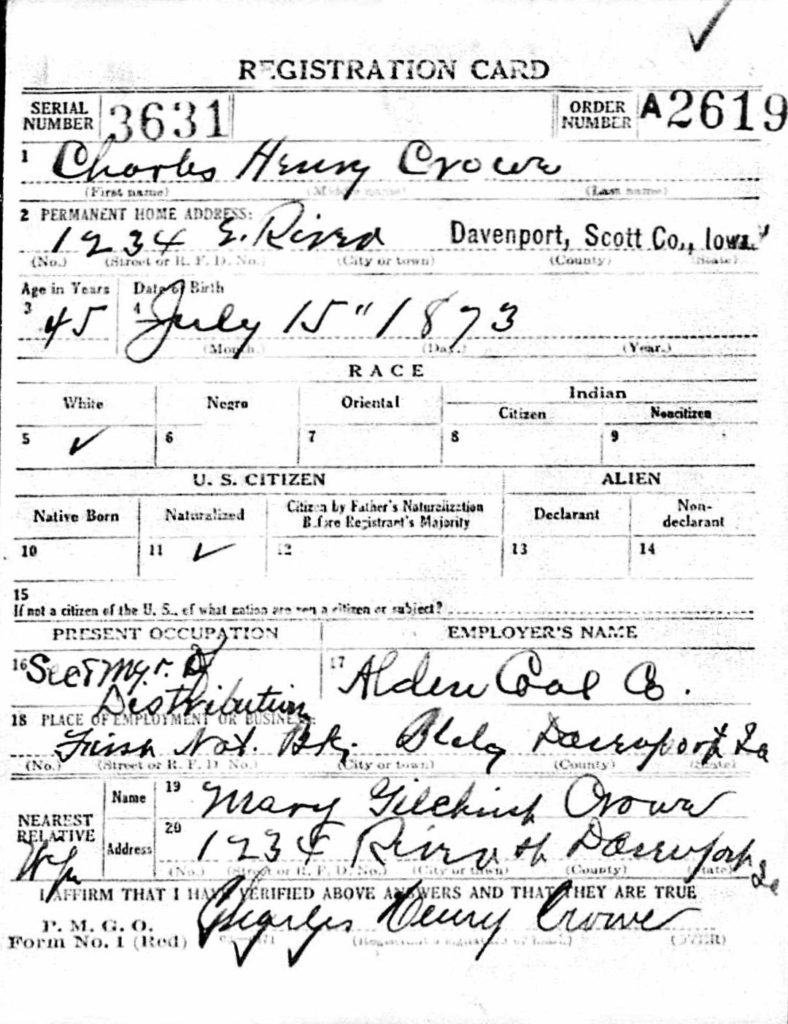 REGISTRATION CARD
SERIAL NUMBER 3631 ORDER NUMBER A2619
1 Charles Henry Crowe
(First name) (Middle name) (Last name)
2 PERMANENT HOME ADDRESS:
1234 E. River Davenport, Scott Co., Iowa
(No.) (Street or R. F. D. No.) (City or town) (County) (State)
Age in Years Date of Birth
3 45 4 July 15" 1873
(Month.) (Day.) (Year.)
RACE
White Negro Oriental Indian
Citizen Noncitizen
5 ✓ 6 7 8 9
U. S. CITIZEN ALIEN
Native Born Naturalized Citizen by Father's Naturalization Before Registrant's Majority Declarant Non-declarant
10 11 ✓ 12 13 14
15
If not a citizen of the U. S., of what nation are you a citizen or subject?
PRESENT OCCUPATION EMPLOYER'S NAME
16 Sec & Mgr. of 17 Alden Coal Co.
Distribution
18 PLACE OF EMPLOYMENT OR BUSINESS:
First Nat. Bk. Bldg Davenport Ia
(No.) (Street or R. F. D. No.) (City or town) (County) (State)
NEAREST RELATIVE Name 19 Mary Gilchrist Crowe
Wife Address 20 1234 River St Davenport Ia
(No.) (Street or R. F. D. No.) (City or town) (County) (State)
I AFFIRM THAT I HAVE VERIFIED ABOVE ANSWERS AND THAT THEY ARE TRUE
P. M. G. O.
Form No. 1 (Red) Charles Henry Crowe
(Registrant's signature or mark) (OVER)